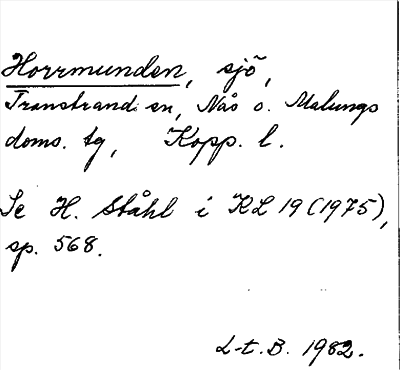 Horrmunden, sjö,
Transtrands sn, Nås o. Malungs
doms. tg, Kopp. l.
Se H. Ståhl i KL 19 (1975),
sp. 568.
L-t. B. 1982.